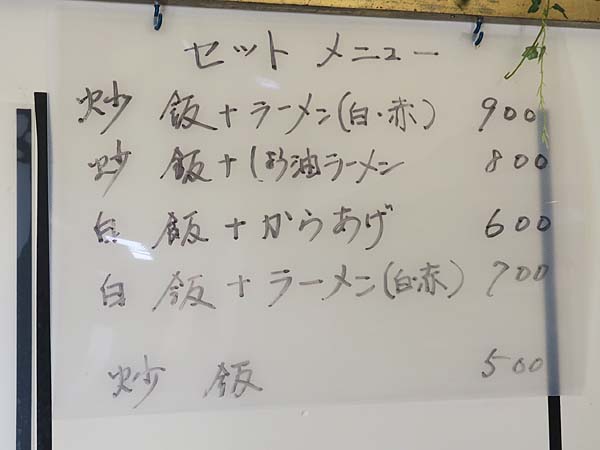 セット メニュー
炒飯+ラーメン(白・赤) 900
炒飯+しょう油ラーメン 800
白飯+からあげ 600
白飯+ラーメン(白・赤) 700
炒飯 500